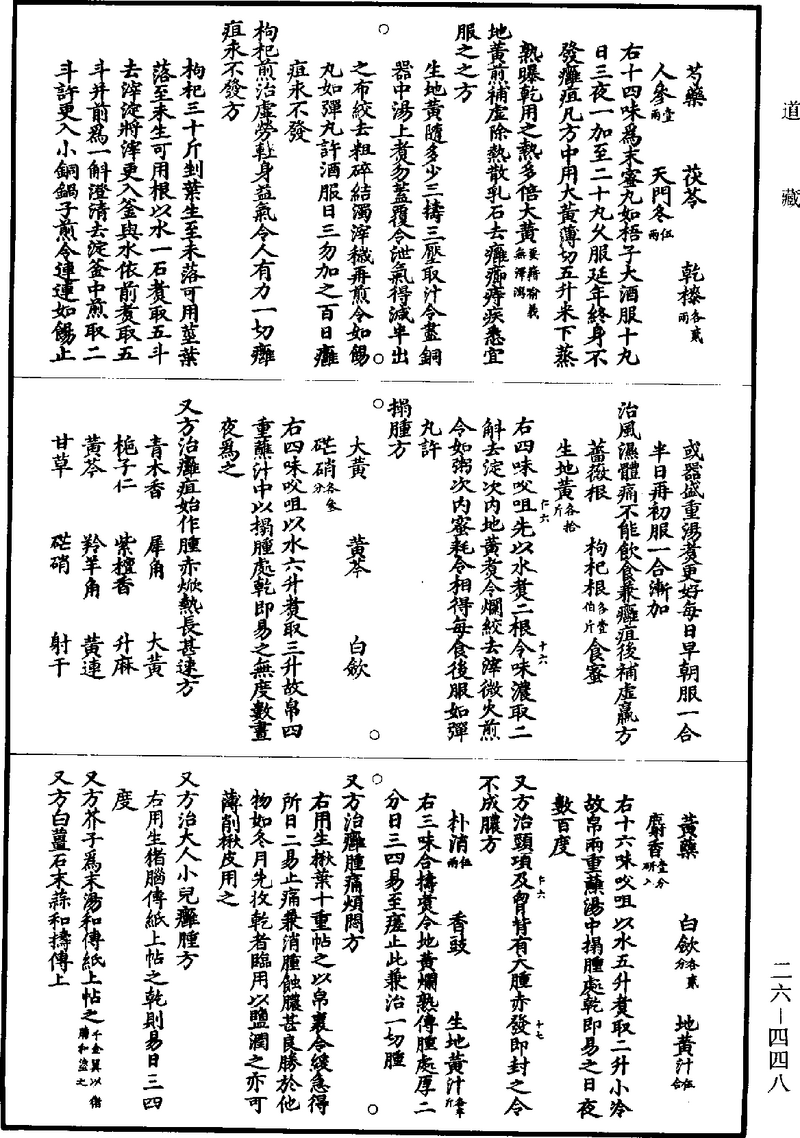 道藏
芍藥　茯苓　乾㯃各貳兩
人參壹兩　天門冬伍兩
右十四味爲末蜜丸如梧子大酒服十丸
日三夜一加至二十丸久服延年終身不
發癰疽凡方中用大黃薄切五升米下蒸
熟曝乾用之熱多倍大黃
地黃煎補虛除熱散乳石去癰癤痔疾悉宜
服之之方
生地黃隨多少三擣三壓取汁令盡銅
器中湯上煑勿蓋覆令泄氣得減半出
之布絞去粗碎結濁滓穢再煎令如餳
丸如彈丸許酒服日三勿加之百日癰
疽永不發
枸杞煎治虛勞輕身益氣令人有力一切癰
疽永不發方
枸杞三十斤剉葉生至未落可用莖葉
落至未生可用根以水一石煑取五斗
去滓淀將滓更入釜與水依前煑取五
斗并前爲一斛澄清去淀釜中煎取二
斗許更入小銅鍋子煎令連連如餳止
或器盛重湯煑更好每日早朝服一合
半日再初服一合漸加
治風濕體痛不能飲食兼癰疽後補虛羸方
薔薇根　枸杞根各壹伯斤　食蜜
生地黃各拾斤
右四味㕮咀先以水煑二根令味濃取二
斛去淀次内地黃煑令爛絞去滓微火煎
令如粥次内蜜耗令相得每食後服如彈
丸許
搨腫方
大黃　黃芩　白歛
芒硝各叁分
右四味㕮咀以水六升煑取三升故帛四
重蘸汁中以搨腫處乾即易之無度數晝
夜爲之
又方治癰疽始作腫赤焮熱長甚速方
青木香　犀角　大黃
梔子仁　紫檀香　升麻
黃芩　羚羊角　黃連
甘草　芒硝　射干
黃蘗　白歛各貳分　地黃汁伍合
麝香壹分研入
右十六味㕮咀以水五升煑取二升小冷
故帛兩重蘸湯中搨腫處乾即易之日夜
數百度
又方治頭項及胷背有大腫赤發即封之令
不成膿方
朴消伍兩　香豉　生地黃汁
右三味合擣煑令地黃爛熟傅腫處厚二
分日三四易至瘥止此兼治一切腫
又方治癰腫痛煩悶方
右用生楸葉十重帖之以帛裹令緩急得
所日二易止痛兼消腫蝕膿甚良勝於他
物如冬月先收乾者臨用以鹽潤之亦可
薄削楸皮用之
又方治大人小兒癰腫方
右用生猪腦傅紙上帖之乾則易日三四
度
又方芥子爲末湯和傅紙上帖之千金翼以猪膽和塗之
又方白薑石末蒜和擣傅上
二六—四四八